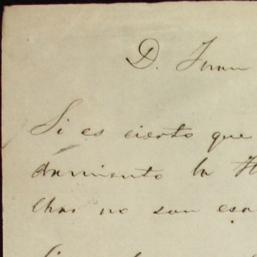 D. Juan
Si es cierto que
damiento la H
chas no son esa